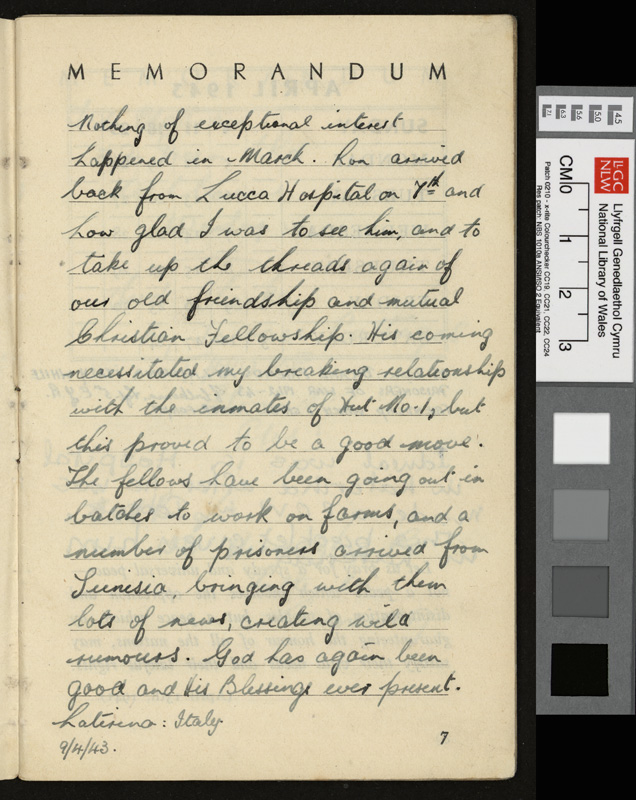 MEMORANDUM
Nothing of exceptional interest
happened in March. Ron arrived
back from Lucca Hospital on 7th and
how glad I was to see him, and to
take up the threads again of
our old friendship and mutual
Christian Fellowship. His coming
necessitated my breaking relationship
with the inmates of Hut No. 1, but
this proved to be a good move.
The fellows have been going out in
batches to work on farms, and a
number of prisoners arrived from
Tunesia, bringing with them
lots of news, creating wild
rumours. God has again been
good and His Blessings ever present.
Laterina: Italy
9/4/43.
7
4.5
5.0
5.6
6.3
7.1
LLGC
NLW
Llyfrgell Genedlaethol Cymru
National Library of Wales
CM 0 1 2 3
Patch 6210 - x-rite Colourchecker CC19, CC21, CC22, CC24
Res patch: NBS 1010a ANSI/ISO 2 Equivalent